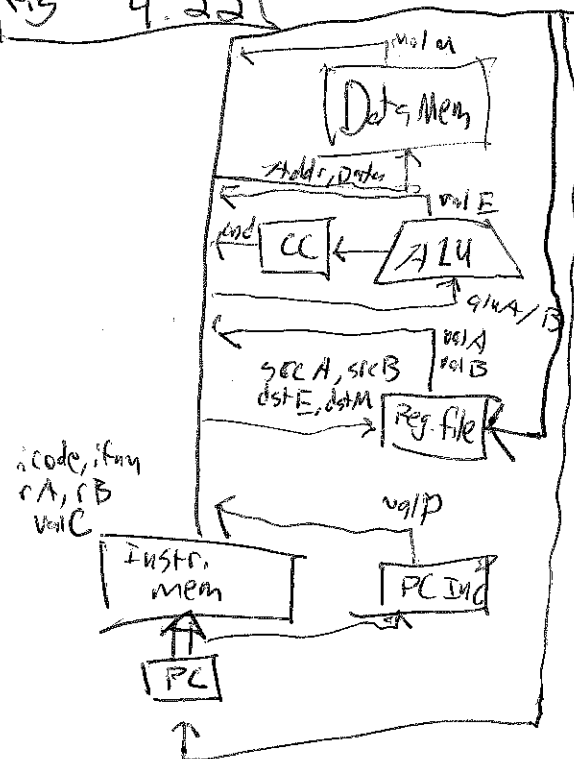 4.22
valM
Data Mem
Addr, Data
valE
cnd
CC
ALU
aluA/B
valA
valB
srcA, srcB
dstE, dstM
Reg. file
icode, ifun
rA, rB
valC
valP
Instr.
mem
PC Inc
PC